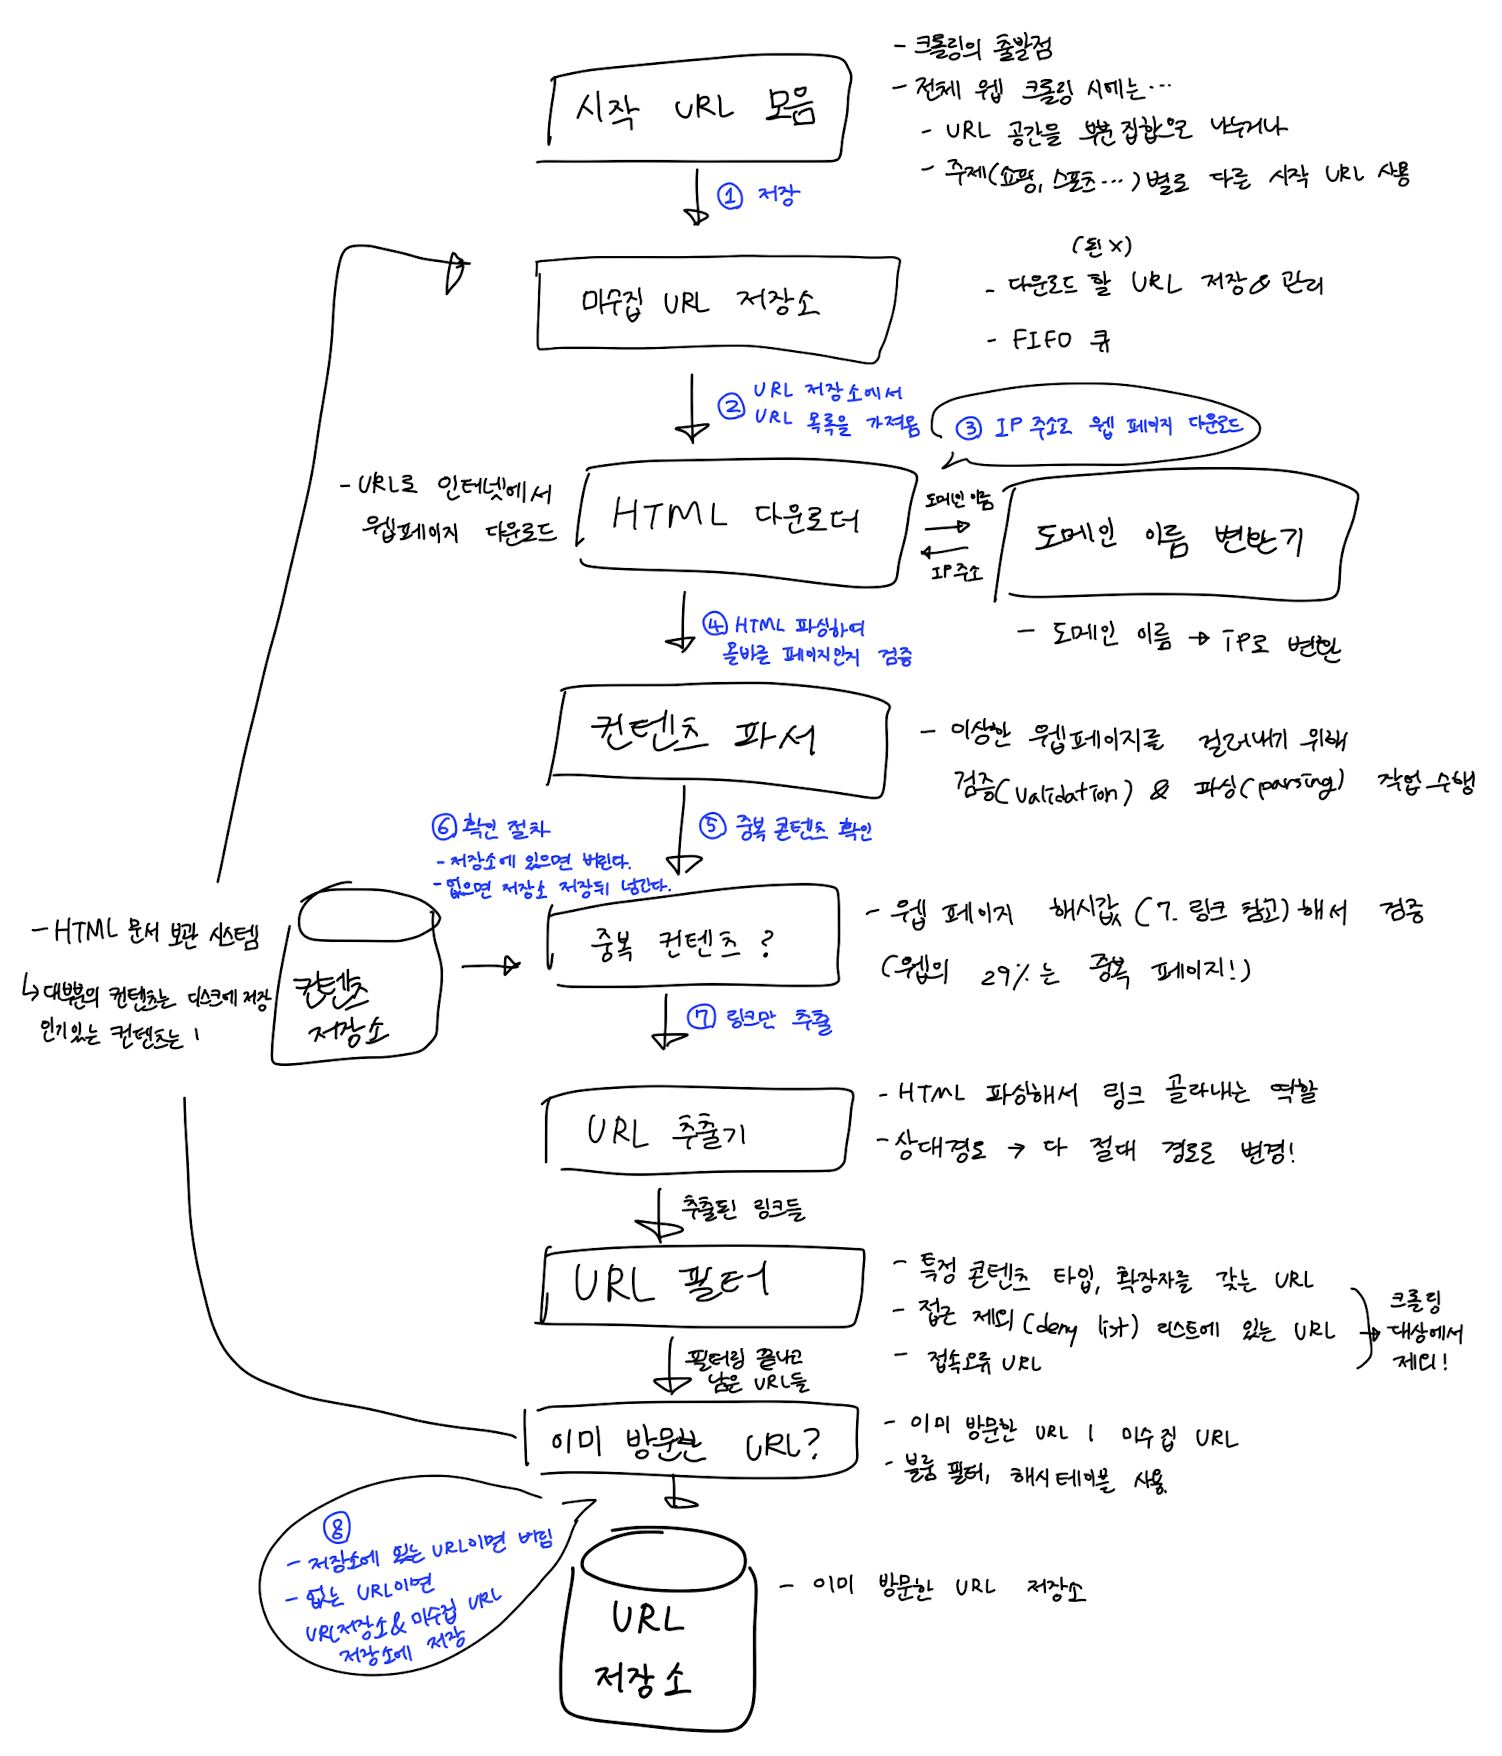 시작 URL 모음
- 크롤링의 출발점
- 전체 웹 크롤링 시에는…
- URL 공간을 부분집합으로 나누거나
- 주제(쇼핑, 스포츠…)별로 다른 시작 URL 사용
① 저장
미수집 URL 저장소
(된 X)
- 다운로드 할 URL 저장 & 관리
- FIFO 큐
② URL 저장소에서
URL 목록을 가져옴
③ IP 주소로 웹 페이지 다운로드
- URL로 인터넷에서
웹페이지 다운로드
HTML 다운로더
도메인 이름
IP 주소
도메인 이름 변환기
- 도메인 이름 → IP로 변환
④ HTML 파싱하여
올바른 페이지인지 검증
컨텐츠 파서
- 이상한 웹페이지를 걸러내기 위해
검증(validation) & 파싱(parsing) 작업 수행
⑤ 중복 콘텐츠 확인
⑥ 확인 절차
- 저장소에 있으면 버린다.
- 없으면 저장소 저장뒤 넘긴다.
중복 컨텐츠?
- 웹 페이지 해시값(7. 링크 참고)해서 검증
(웹의 29%는 중복 페이지!)
- HTML 문서 보관 시스템
↳ 대부분의 컨텐츠는 디스크에 저장
인기있는 컨텐츠는 |
컨텐츠
저장소
⑦ 링크만 추출
URL 추출기
- HTML 파싱해서 링크 골라내는 역할
- 상대경로 → 다 절대 경로로 변경!
추출된 링크들
URL 필터
- 특정 콘텐츠 타입, 확장자를 갖는 URL
- 접근 제외(deny list) 리스트에 있는 URL
- 접속오류 URL
크롤링
대상에서
제외!
필터링 끝나고
남은 URL들
이미 방문한 URL?
- 이미 방문한 URL | 미수집 URL
- 블룸 필터, 해시 테이블 사용.
⑧
- 저장소에 있는 URL이면 버림
- 없는 URL이면
URL저장소 & 미수집 URL
저장소에 저장
URL
저장소
- 이미 방문한 URL 저장소